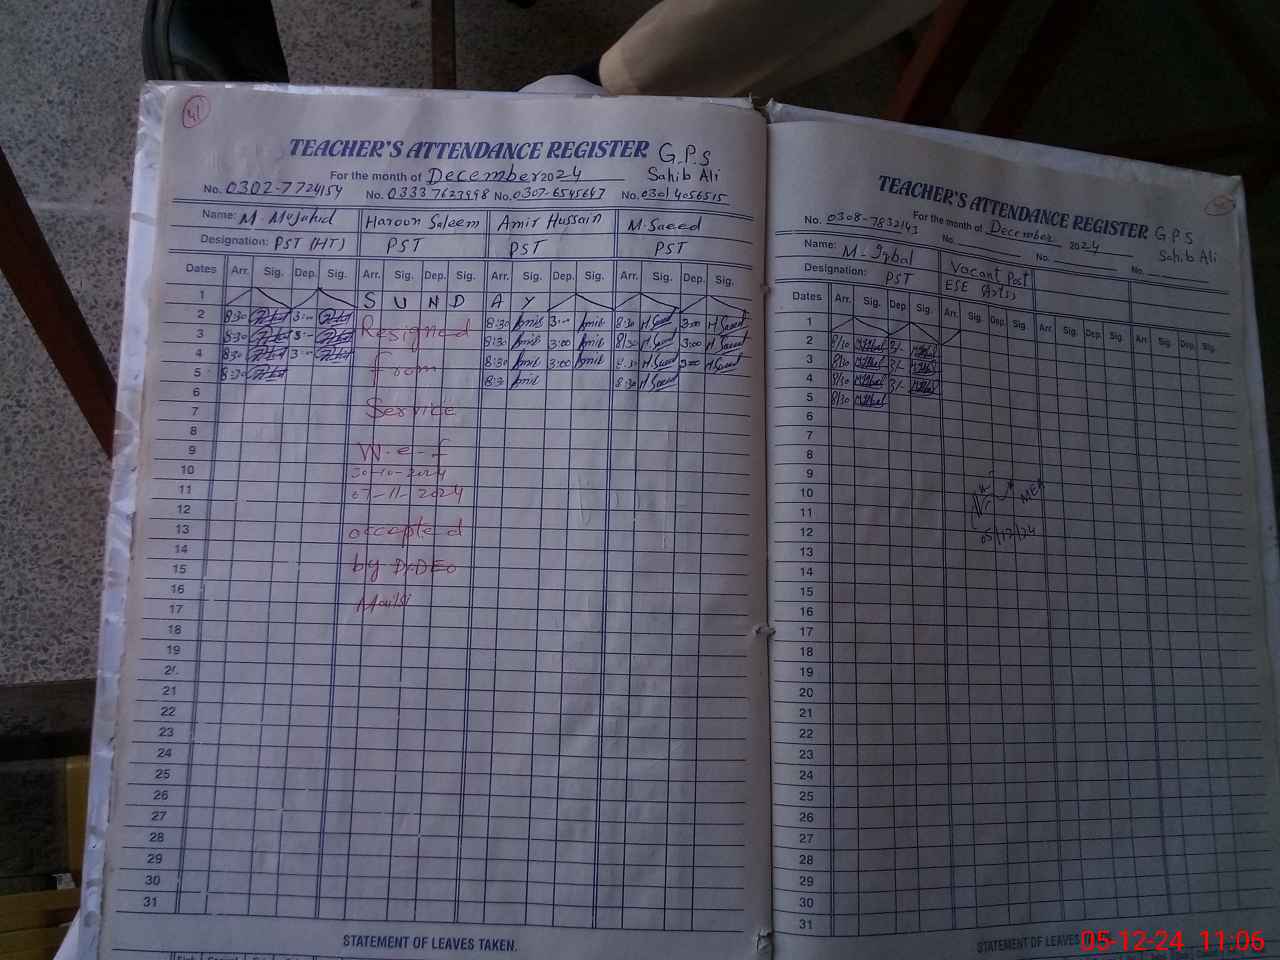 41
TEACHER'S ATTENDANCE REGISTER G.P.S
For the month of December 2024 Sahib Ali
No. 0302-7724154 No. 0333 7627998 No. 0307-6545647 No. 0301 4056515
Name: M. Mujahid Haroon Saleem Amir Hussain M. Saeed
Designation: PST (HT) PST PST PST
Dates Arr. Sig. Dep. Sig. Arr. Sig. Dep. Sig. Arr. Sig. Dep. Sig. Arr. Sig. Dep. Sig.
1 S U N D A Y
2 8:30 3:00 Resigned 8:30 Amir 3:00 Amir 8:30 H Saeed 3:00 H Saeed
3 8:30 3:00 8:30 Amir 3:00 Amir 8:30 H Saeed 3:00 H Saeed
4 8:30 3:00 from 8:30 Amir 3:00 Amir 8:30 H Saeed 3:00 H Saeed
5 8:30 8:30 Amir 8:30 H Saeed
6
7 Service
8
9 W.e.f
10 30-10-2024
11 07-11-2024
12
13 accepted
14
15 by Dy.DEO
16
17 Mailsi
18
19
20
21
22
23
24
25
26
27
28
29
30
31
STATEMENT OF LEAVES TAKEN.
TEACHER'S ATTENDANCE REGISTER G.P.S
For the month of December 2024 Sahib Ali
No. 0308-7832143 No. No. No.
Name: M. Iqbal Vacant Post
Designation: PST ESE (Arts)
Dates Arr. Sig. Dep. Sig. Arr. Sig. Dep. Sig. Arr. Sig. Dep. Sig. Arr. Sig. Dep. Sig.
1
2 8/30 M Iqbal 3/- M Iqbal
3 8/30 M Iqbal 3/- M Iqbal
4 8/30 M Iqbal 3/- M Iqbal
5 8/30 M Iqbal
6
7
8
9
10 MEA
11
12 05/12/24
13
14
15
16
17
18
19
20
21
22
23
24
25
26
27
28
29
30
31
STATEMENT OF LEAVES
05-12-24 11:06